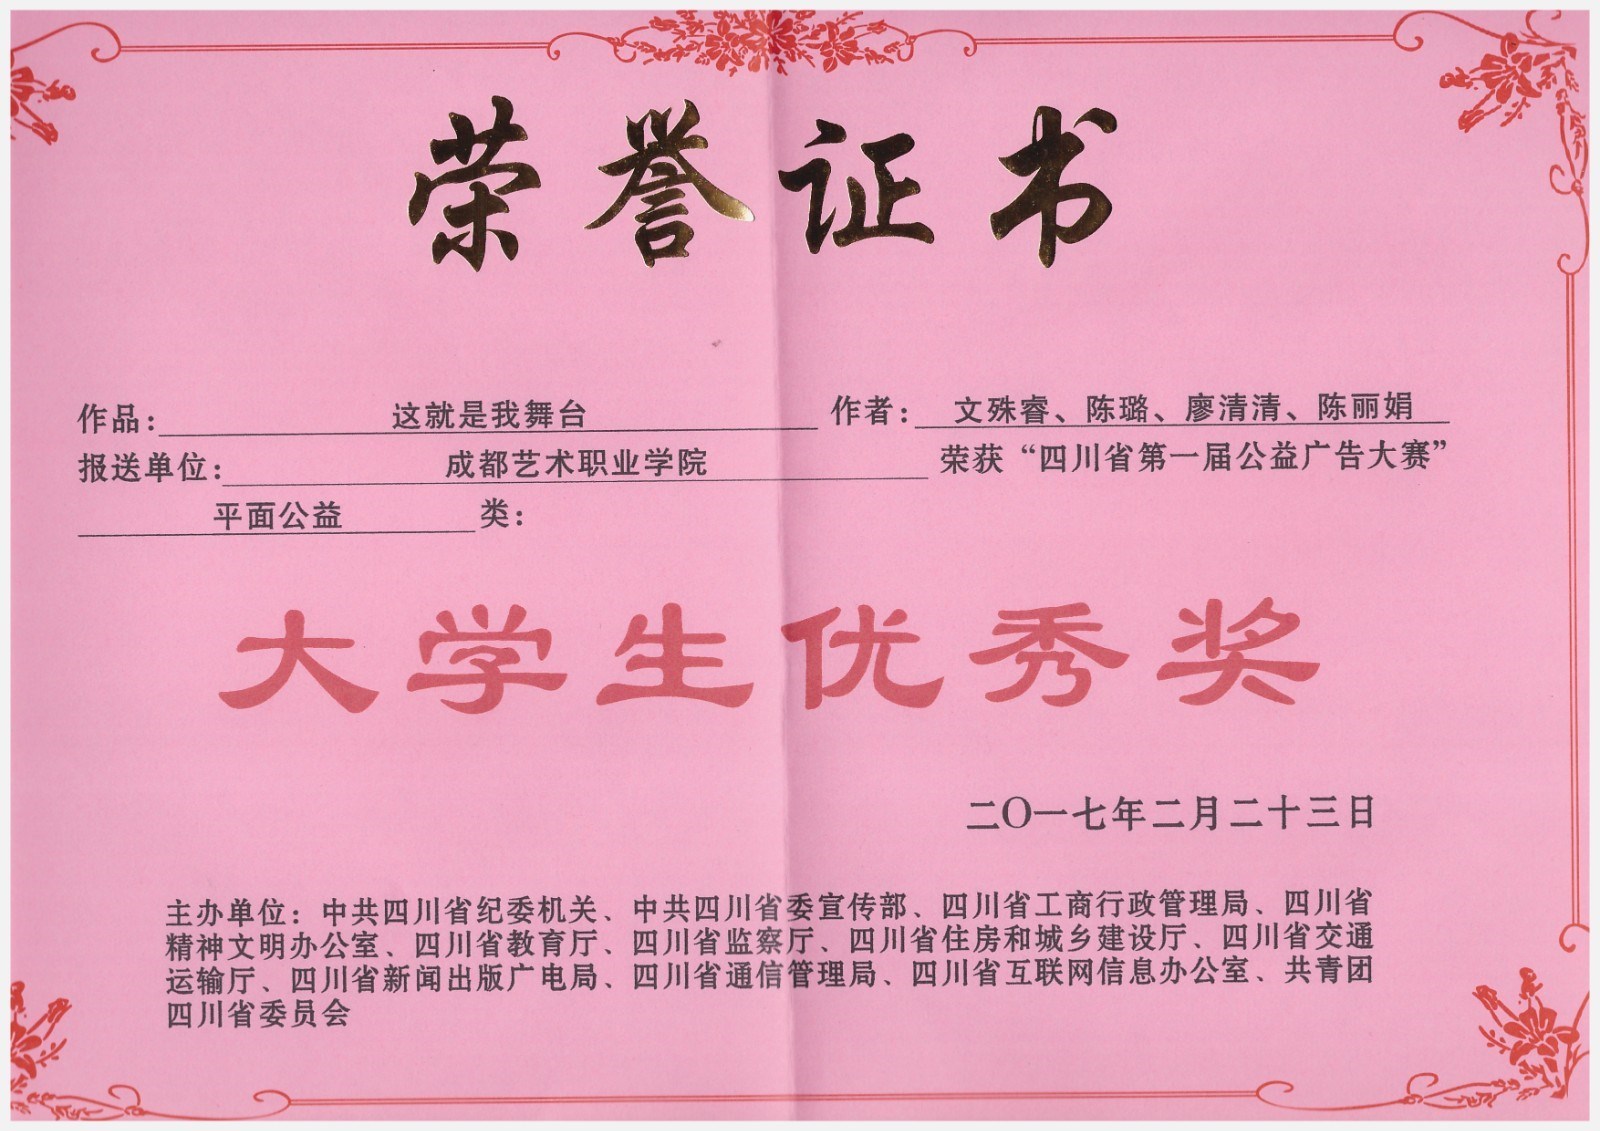 荣誉证书
作品：这就是我舞台 作者：文殊睿、陈璐、廖清清、陈丽娟
报送单位：成都艺术职业学院 荣获“四川省第一届公益广告大赛”
平面公益 类：
大学生优秀奖
二〇一七年二月二十三日
主办单位：中共四川省纪委机关、中共四川省委宣传部、四川省工商行政管理局、四川省
精神文明办公室、四川省教育厅、四川省监察厅、四川省住房和城乡建设厅、四川省交通
运输厅、四川省新闻出版广电局、四川省通信管理局、四川省互联网信息办公室、共青团
四川省委员会